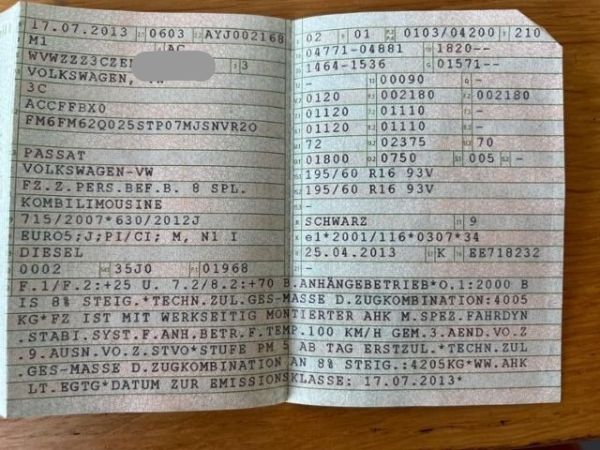 17.07.2013 0603 AYJ002168
M1 AC
WVWZZZ3CZE 3
VOLKSWAGEN, VW
3C
ACCFFBX0
FM6FM62Q025STP07MJSNVR2O
PASSAT
VOLKSWAGEN-VW
FZ.Z.PERS.BEF.B. 8 SPL.
KOMBILIMOUSINE
715/2007*630/2012J
EURO5;J;PI/CI; M, N1 I
DIESEL
0002 35J0 01968
02 01 0103/04200 210
04771-04881 1820--
1464-1536 01571--
- 00090 -
0120 002180 002180
01120 01110 -
01120 01110 -
72 02375 70
01800 0750 005 -
195/60 R16 93V
195/60 R16 93V
-
SCHWARZ 9
e1*2001/116*0307*34
25.04.2013 K EE718232
-
F.1/F.2:+25 U. 7.2/8.2:+70 B.ANHÄNGEBETRIEB*O.1:2000 B
IS 8% STEIG.*TECHN.ZUL.GES-MASSE D.ZUGKOMBINATION:4005
KG*FZ IST MIT WERKSEITIG MONTIERTER AHK M.SPEZ.FAHRDYN
.STABI.SYST.F.ANH.BETR.F.TEMP.100 KM/H GEM.3.AEND.VO.Z
.9.AUSN.VO.Z.STVO*STUFE PM 5 AB TAG ERSTZUL.*TECHN.ZUL
GES-MASSE D.ZUGKOMBINATION AN 8% STEIG.:4205KG*WW.AHK
LT.EGTG*DATUM ZUR EMISSIONSKLASSE: 17.07.2013*